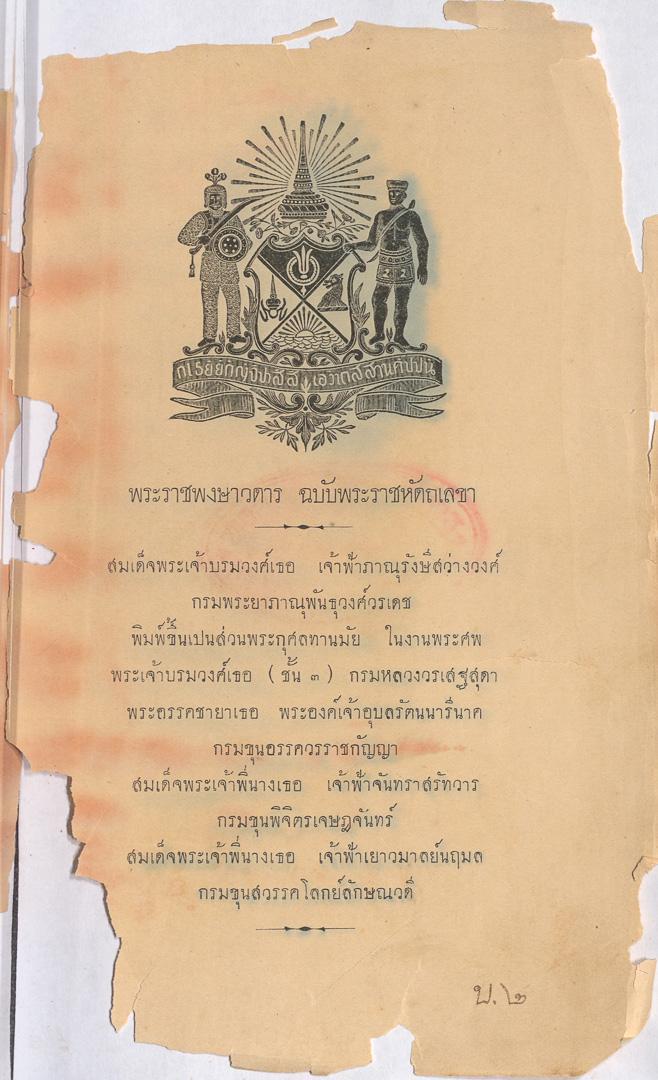 พระราชพงษาวดาร ฉบับพระราชหัดถเลขา
สมเด็จพระเจ้าบรมวงศ์เธอ เจ้าฟ้าภาณุรังษีสว่างวงศ์
กรมพระยาภาณุพันธุวงศ์วรเดช
พิมพ์ขึ้นเปนส่วนพระกุศลทานมัย ในงานพระศพ
พระเจ้าบรมวงศ์เธอ (ชั้น ๓) กรมหลวงวรเสฐสุดา
พระอรรคชายาเธอ พระองค์เจ้าอุบลรัตนนารีนาค
กรมขุนอรรควรราชกัญญา
สมเด็จพระเจ้าพี่นางเธอ เจ้าฟ้าจันทราสรัทวาร
กรมขุนพิจิตรเจษฎจันทร์
สมเด็จพระเจ้าพี่นางเธอ เจ้าฟ้าเยาวมาลย์นฤมล
กรมขุนสวรรคโลกย์ลักษณวดี